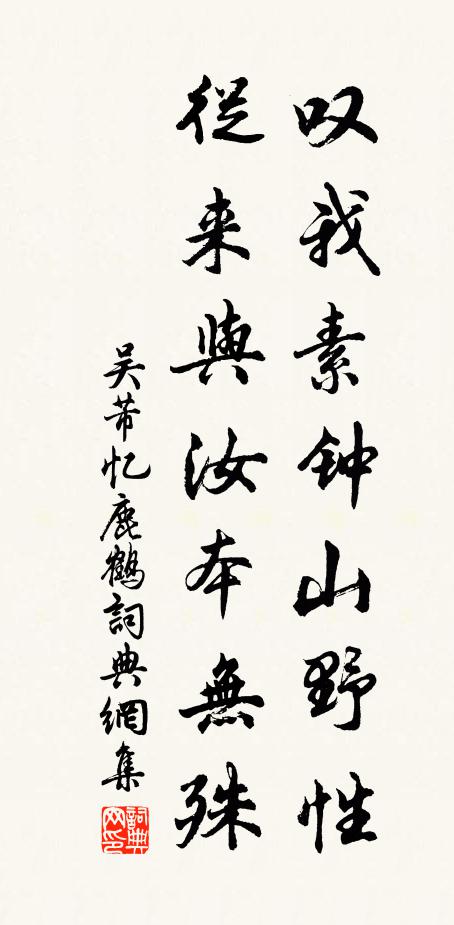 叹我素钟山野性
從来與汝本無殊
吴芾忆鹿鶴詞典網集
詞典
网印